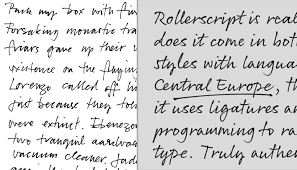 Pack my box with five
Forsaking monastic tra
friars gave up their v
existence on the flying
Lorenzo called off h
just because they told
were extinct. Ebenezer
two tranquil aardvar
vacuum cleaner. Jad
Rollerscript is real
does it come in both
styles with langua
Central Europe, th
it uses ligatures an
programming to ra
type. Truly authe